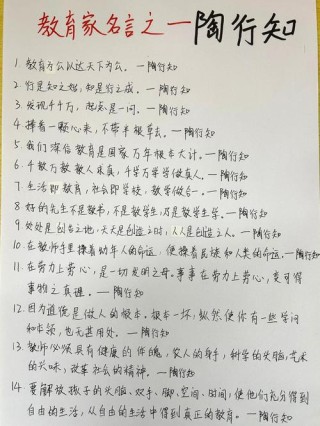 教育家名言之一陶行知
1. 教育为公以达天下为公。一陶行知
2. 行是知之始，知是行之成。一陶行知
3. 发现千千万，起点是一问。一陶行知
4. 捧着一颗心来，不带半根草去。一陶行知
5. 我们深信教育是国家万年根本大计。一陶行知
6. 千教万教教人求真，千学万学学做真人。一陶行知
7. 生活即教育，社会即学校，教学做合一。一陶行知
8. 好的先生不是教书，不是教学生，乃是教学生学。一陶行知
9. 处处是创造之地，天天是创造之时，人人是创造之人。一陶行知
10. 在教师手里操着幼年人的命运，便操着民族和人类的命运。一陶行知
11. 在劳力上劳心，是一切发明之母。事事在劳力上劳心，变可得
事物之真理。一陶行知
12. 因为道德是做人的根本。根本一坏，纵然使你有一些学问
和本领，也无甚用处。一陶行知
13. 教师必须具有健康的体魄，农人的身手，科学的头脑，艺术
的兴味，改革社会的精神。一陶行知
14. 要解放孩子的头脑、双手、脚、空间、时间，使他们充分得到
自由的生活，从自由的生活中得到真正的教育。一陶行知